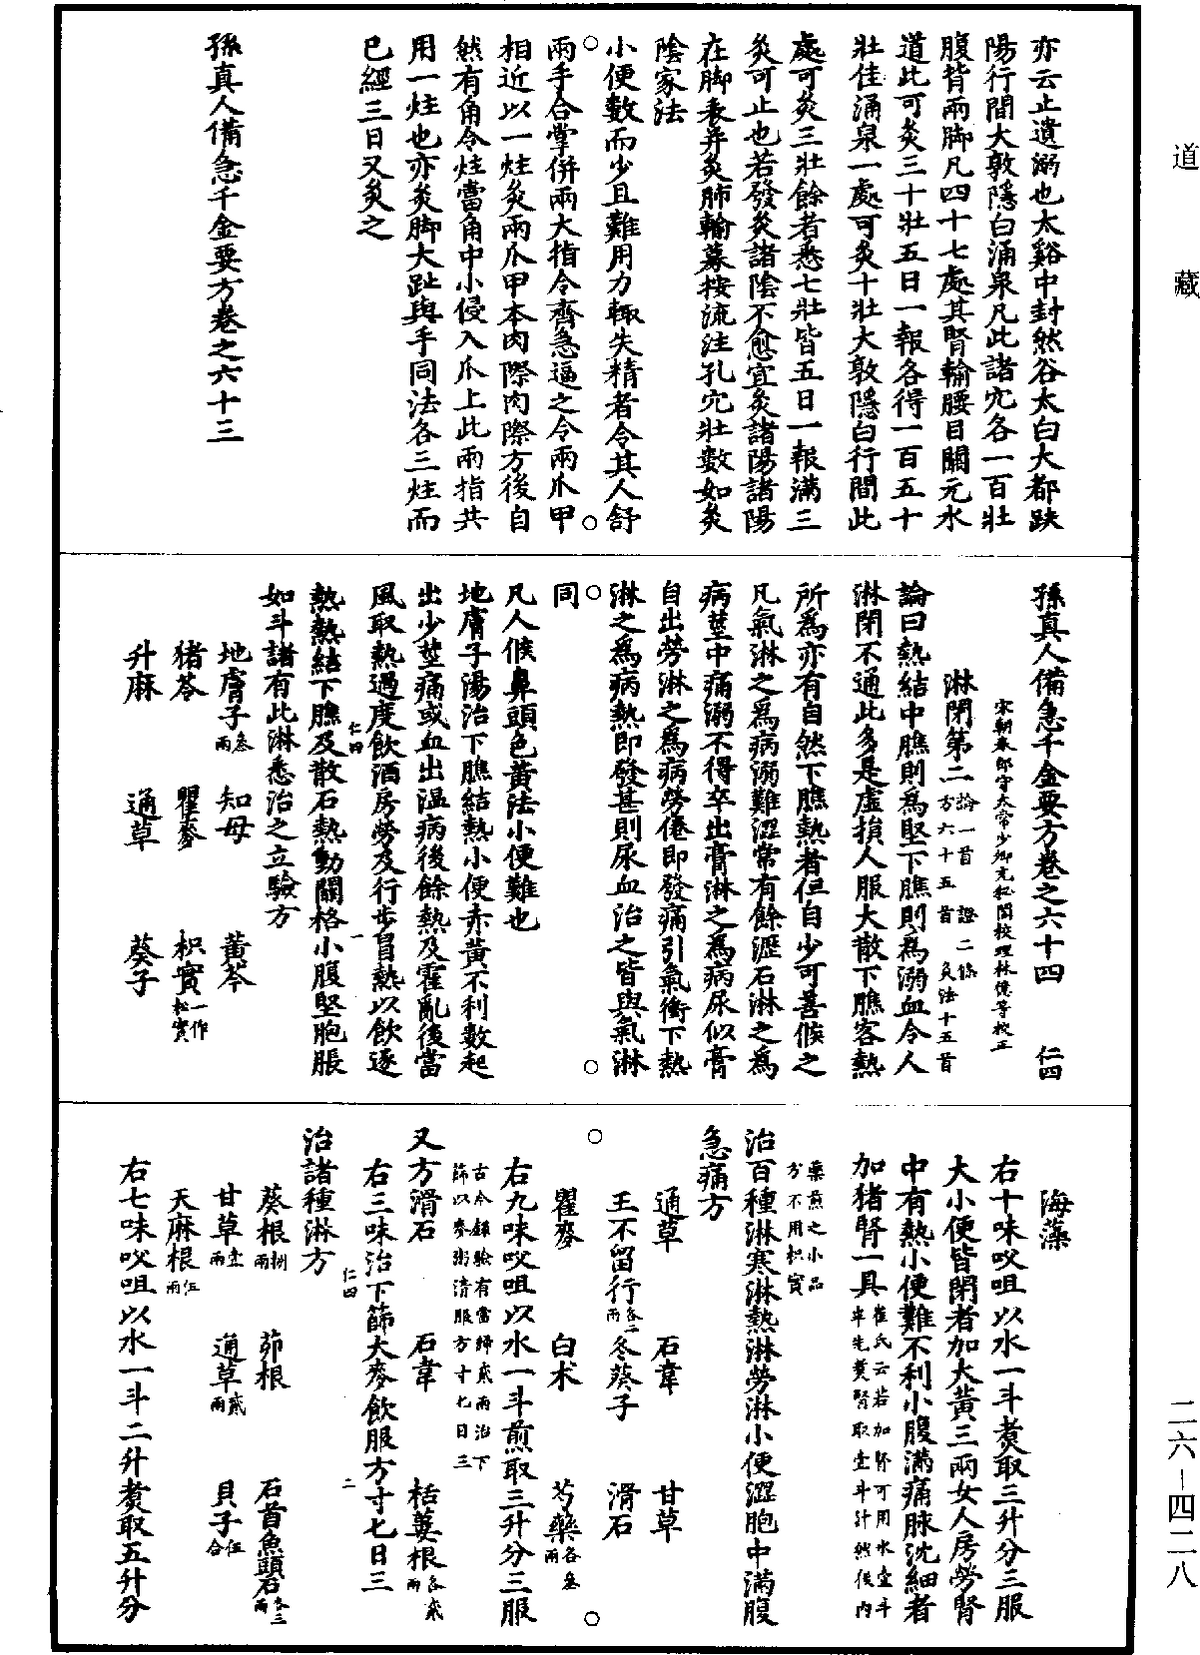 道藏
亦云止遺溺也太谿中封然谷太白大都趺
陽行間大敦隱白涌泉凡此諸穴各一百壯
腹背兩脚凡四十七處其腎輸腰目關元水
道此可灸三十壯五日一報各得一百五十
壯佳涌泉一處可灸十壯大敦隱白行間此
處可灸三壯餘者悉七壯皆五日一報滿三
灸可止也若發灸諸陰不愈宜灸諸陽諸陽
在脚表并灸肺輸募按流注孔穴壯數如灸
陰家法
小便數而少且難用力輙失精者令其人舒
兩手合掌併兩大指令齊急逼之令兩爪甲
相近以一炷灸兩爪甲本肉際肉際方後自
然有角令炷當角中小侵入爪上此兩指共
用一炷也亦灸脚大趾與手同法各三炷而
已經三日又灸之
孫真人備急千金要方卷之六十三
孫真人備急千金要方卷之六十四 仁四
宋朝奉郎守太常少卿充秘閣校理林億等校正
淋閉第二論一首 證二條
方六十五首 灸法十五首
論曰熱結中膲則為堅下膲則為溺血令人
淋閉不通此多是虛損人服大散下膲客熱
所為亦有自然下膲熱者但自少可善候之
凡氣淋之為病溺難澀常有餘瀝石淋之為
病莖中痛溺不得卒出膏淋之為病尿似膏
自出勞淋之為病勞倦即發痛引氣衝下熱
淋之為病熱即發甚則尿血治之皆與氣淋
同
凡人候鼻頭色黃法小便難也
地膚子湯治下膲結熱小便赤黃不利數起
出少莖痛或血出温病後餘熱及霍亂後當
風取熱過度飲酒房勞及行步冒熱以飲逐
仁四 一
熱熱結下膲及散石熱動關格小腹堅胞脹
如斗諸有此淋悉治之立驗方
地膚子叁兩 知母 黃芩
猪苓 瞿麥 枳實一作松實
升麻 通草 葵子
海藻
右十味㕮咀以水一斗煑取三升分三服
大小便皆閉者加大黃三兩女人房勞腎
中有熱小便難不利小腹滿痛脉沈細者
加猪腎一具崔氏云若加腎可用水壹斗
半先煑腎取壹斗汁然後内
藥煎之小品
方不用枳實
治百種淋寒淋熱淋勞淋小便澀胞中滿腹
急痛方
通草 石韋 甘草
王不留行各二兩 冬葵子 滑石
瞿麥 白术 芍藥各叁兩
右九味㕮咀以水一斗煎取三升分三服
古今録驗有當歸貳兩治下
篩以麥粥清服方寸匕日三
又方滑石 石韋 栝蔞根各貳兩
右三味治下篩大麥飲服方寸匕日三
仁四 二
治諸種淋方
葵根捌兩 茆根 石首魚頭石各三兩
甘草壹兩 通草貳兩 貝子伍合
天麻根伍兩
右七味㕮咀以水一斗二升煑取五升分
二六–四二八